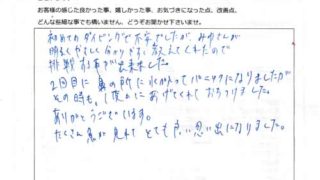 お客様の感じた良かった事、嬉しかった事、お気づきになった点、改善点、
どんな些細な事でも構いません、どうぞお聞かせ下さいませ。
初めてのダイビングで不安でしたが、みなさんが
明るくやさしく分かりやすく教えてくれたので
挑戦する事が出来ました。
2回目に鼻の所に水が入ってパニックになりましたが
その時も、1度上にあげてくれておちつけました。
ありがとうございます。
たくさん魚が見れてとても良い思い出になりました。